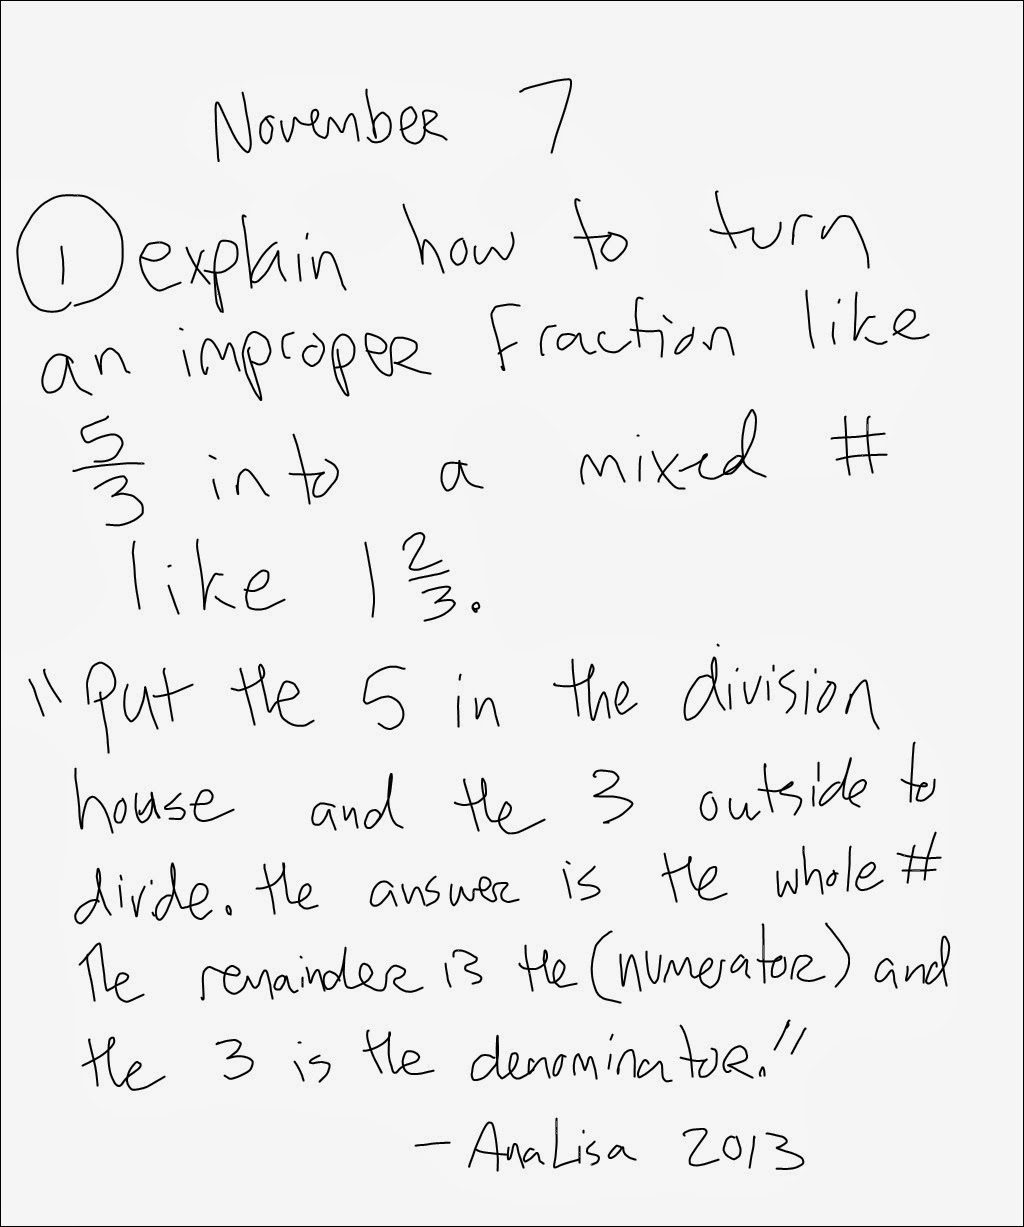 November 7
① explain how to turn
an improper fraction like
5/3 into a mixed #
like 1 2/3.
"Put the 5 in the division
house and the 3 outside to
divide. the answer is the whole #
The remainder is the (numerator) and
the 3 is the denominator."
- AnaLisa 2013